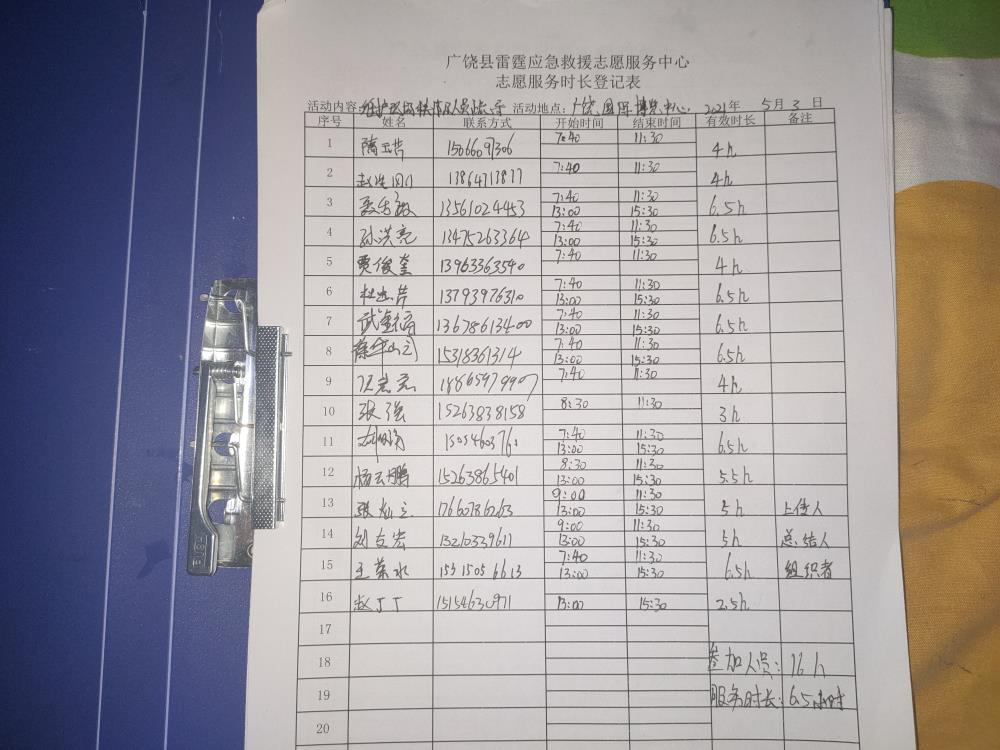 广饶县雷霆应急救援志愿服务中心
志愿服务时长登记表
活动内容: 活动地点: 广饶国际博览中心 2021年 5月3日
序号 姓名 联系方式 开始时间 结束时间 有效时长 备注
1 隋玉芹 15066097306 7:40 11:30 4h
2 赵连刚 13864713877 7:40 11:30 4h
3 13561024453 7:40 11:30 13:00 15:30 6.5h
4 孙洪亮 13475263364 7:40 11:30 13:00 15:30 6.5h
5 贾俊奎 13963363540 7:40 11:30 4h
6 13793976310 7:40 11:30 13:00 15:30 6.5h
7 武金福 13678613400 7:40 11:30 13:00 15:30 6.5h
8 15318361314 7:40 11:30 13:00 15:30 6.5h
9 18865979907 7:40 11:30 4h
10 张强 15263838158 8:30 11:30 3h
11 7:40 11:30 13:00 15:30 6.5h
12 杨云鹏 15263865401 8:30 11:30 13:00 15:30 5.5h
13 17660786263 9:00 11:30 13:00 15:30 5h 上传人
14 刘友宏 13210339617 9:00 11:30 13:00 15:30 5h 总结人
15 王荣水 153 1505 6613 7:40 11:30 13:00 15:30 6.5h 组织者
16 赵丁丁 15154630971 13:00 15:30 2.5h
17
18 参加人员: 16h
19 服务时长: 6.5小时
20